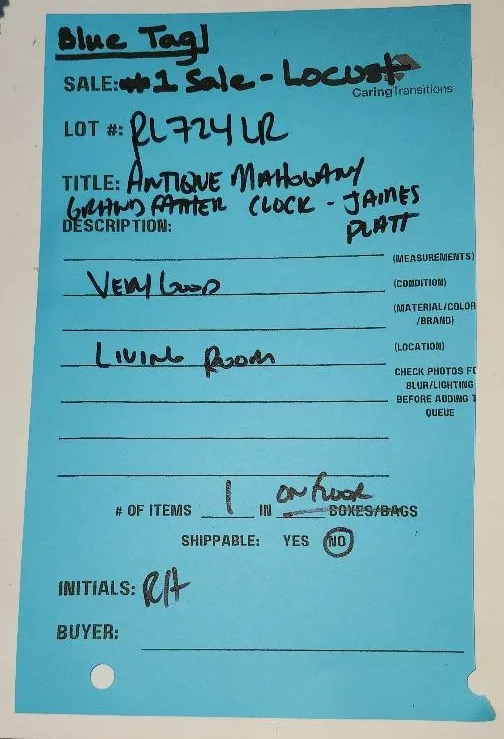 Blue Tag
SALE: #1 Sale - Locust
CaringTransitions
LOT #: RL724LR
TITLE: ANTIQUE MAHOGANY
GRANDFATHER CLOCK - JAMES
PLATT
DESCRIPTION:
(MEASUREMENTS)
VERY GOOD (CONDITION)
(MATERIAL/COLOR
/BRAND)
LIVING ROOM (LOCATION)
CHECK PHOTOS F
BLUR/LIGHTING
BEFORE ADDING T
QUEUE
# OF ITEMS 1 IN ON FLOOR BOXES/BAGS
SHIPPABLE: YES NO
INITIALS: RH
BUYER: